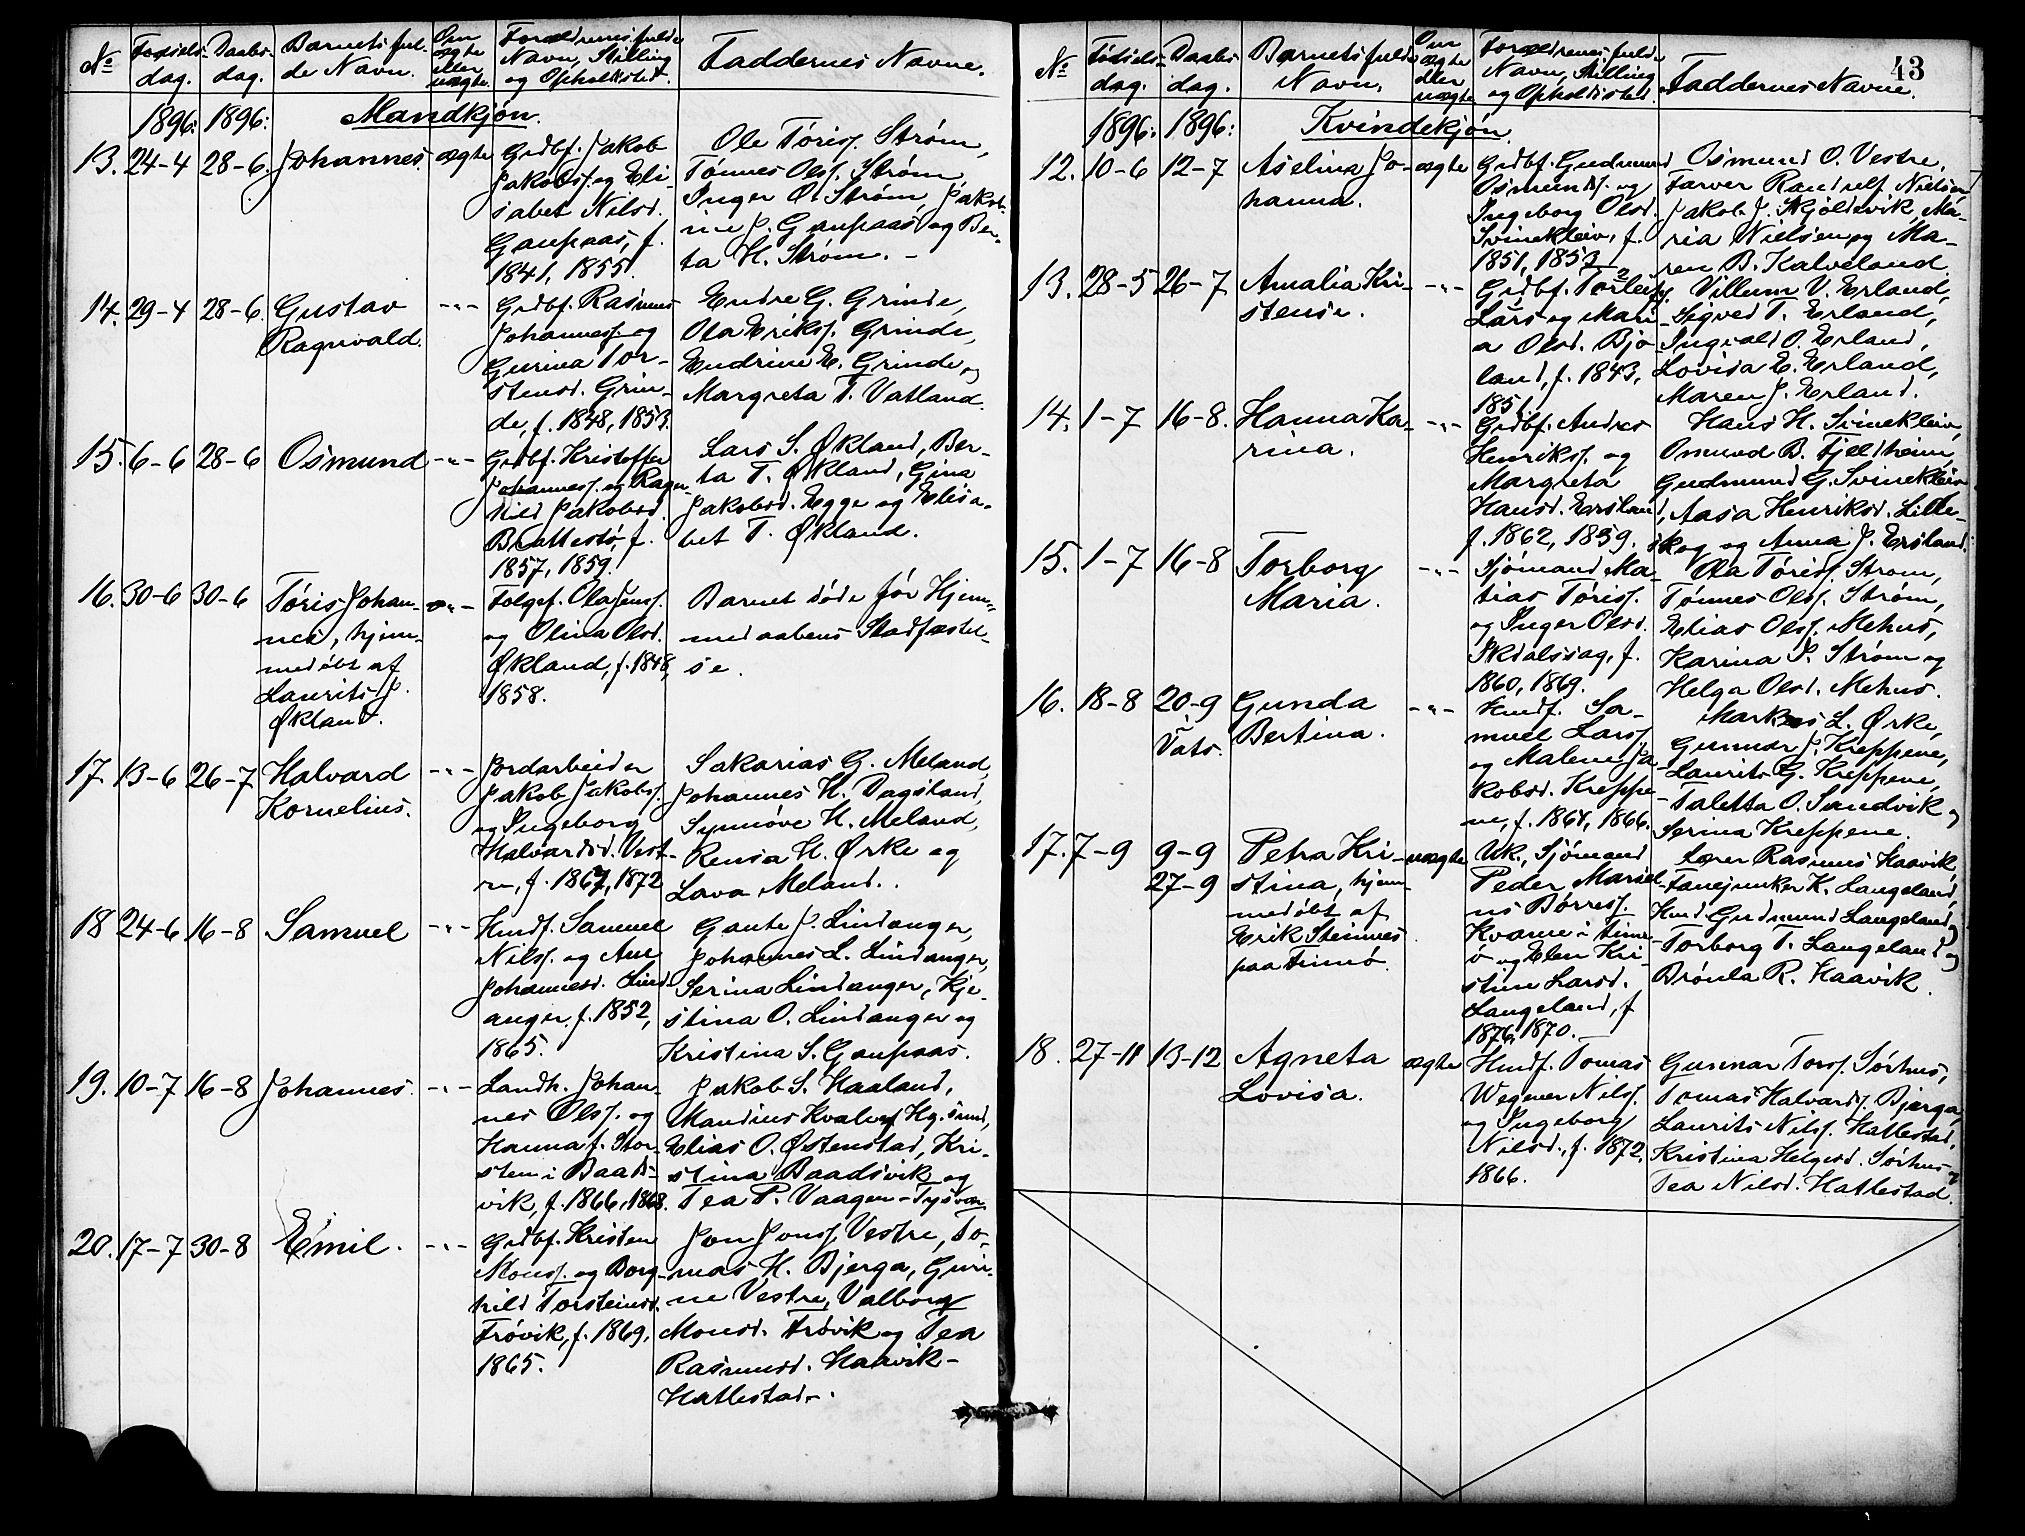 No Fødsels- dag. Daabs- dag. Barnets ful- de Navn. Om ægte eller uægte. Forældrenes fulde Navn, Stilling og Opholdsted. Faddernes Navne.
1896: 1896: Mandkjøn.
13. 24-4 28-6. Johannes. ægte
Grdbf. Jakob
Jakobs. og Eli-
sabet Nilsd.
Gaupaas, f.
1841, 1855.
Ole Tóriss. Strøm,
Tønnes Olss. Strøm
Inger O. Strøm, Jakob-
ine J. Gaupaas og Ber-
ta H. Strøm. -
14. 29-4 28-6. Gustav
Ragnvald. -"-
Grdbf. Rasmus
Johanness. og
Gurina Tor-
stensd. Grin-
de, f. 1848, 1853.
Endre G. Grinde,
Ola Erikss. Grinde,
Endrine E. Grinde og
Margreta T. Vatland.
15. 6-6 28-6 Osmund -"-
Grdbf. Kristoffer
Johanness. og Ragn-
hild Jakobsd.
Brattestø, f.
1857, 1859.
Lars S. Økland, Ber-
ta T. Økland, Gina
Jakobsd. Egge og Elisa-
bet T. Økland.
16. 30-6 30-6 Tóris Johan-
nes, hjem-
medøbt af
Laurits J.
Økland. -"-
Folgef. Ola Jenss.
og Olina Olsd.
Økland, f. 1848,
1858.
Barnet døde før Hjem-
medaabens Stadfæstel-
se.
17. 13-6 26-7 Halvard
Kornelius. -"-
Jordarbeider
Jakob Jakobs.
og Ingeborg
Halvardsd. Vest-
re, f. 1867, 1872
Sakarias G. Meland,
Johannes H. Dagsland,
Synnøve H. Meland,
Rensa H. Ørke og
Lava Meland.
18 24-6 16-8 Samuel -"-
Husf. Samuel
Nilss. og Ane
Johannesd. Lind-
anger. f. 1852,
1865.
Gaute J. Lindanger,
Johannes L. Lindanger,
Serina Lindanger, Kje-
stina O. Lindanger og
Kristina S. Gaupaas.
19. 10-7 16-8 Johannes. -"-
Landh. Johan-
nes Olss. og
Hanna f. Stor-
sten i Baads-
vik, f. 1866, 1868.
Jakob S. Haaland,
Mandius Kvalen Hg.sund,
Elias O. Østenstad, Kri-
stina Baadsvik og
Tea P. Vaagen - Tysvær
20. 17-7 30-8 Emil. -"-
Grdbf. Kristen
Monss. og Borg-
hild Torsteinsd.
Frøvik, f. 1869,
1865.
Jon Jonss. Vestre, To-
mas H. Bjerga, Guri-
ne Vestre, Valborg
Monsd. Frøvik og Tea
Rasmusd. Haavik-
Hallestad.
43
No Fødsels- dag. Daabs- dag. Barnets fulde Navn. Om ægte eller uægte Forældrenes fulde Navn, Stilling og Opholdsted. Faddernes Navne.
1896: 1896: Kvindekjøn.
12. 10-6 12-7 Aselina Jo-
hanna. ægte
Grdbf. Gudmund
Osmunds. og
Ingeborg Olsd.
Svinekleiv, f.
1851, 1853
Osmund O. Vestre,
Farver Randulf Nielsen
Jakob J. Skjoldevik, Ma-
ria Nielsen og Ma-
ren B. Kalveland.
13. 28-5 26-7 Amalia Kri-
stense. -"-
Grdbf. Torleif
Lars og Mari-
a Olsd. Bjo-
land, f. 1843,
1851.
Villum V. Erland,
Sigved T. Erland,
Ingvald O. Erland,
Lovisa E. Erland,
Maren J. Erland.
14. 1-7 16-8. Hanna Ka-
rina. -"-
Grdbf. Andres
Henrikss. og
Margreta
Hansd. Ersland,
f. 1862, 1859.
Hans H. Svinekleiv,
Osmund B. Fjeldheim,
Gudmund G. Svinekleiv
Aasa Henriksd. Lille-
skog og Anna J. Ersland.
15. 1-7 16-8 Torborg
Maria. -"-
Sjømand Ma-
tias Tóriss.
og Inger Olsd.
Skialssag, f.
1860, 1869.
Ola Tóriss. Strøm,
Tønnes Olss. Strøm,
Elias Olss. Mehus,
Karina S. Strøm og
Helga Olsd. Mehus.
16. 18-8 20-9
Vats. Gunda
Bertina. -"-
Husf. Sa-
muel Larss.
og Malene Ja-
kobsd. Kreppe-
ne, f. 1864, 1866.
Markus L. Ørke,
Gunnar J. Kreppene,
Laurits G. Kreppene,
Taletta O. Sandvik og
Serina Kreppene.
17. 7-9 9-9
27-9 Petra Kri-
stina, hjem-
medøbt af
Erik Steinnes
paa Finnø. uægte
Uk., Sjømand
Peder Marseli-
us Børress.
Kvame i Finn-
ø og Elen Kri-
stine Larsd.
Langeland, f
1876, 1870.
Lærer Rasmus Haavik,
Fanejunker K. Langeland,
Husf. Gudmund Langeland,
Torborg T. Langeland og
Brónla R. Haavik.
18. 27-11 13-12 Agneta
Lovisa. ægte
Husf. Tomas
Wegner Nilss.
og Ingeborg
Nilsd., f. 1872,
1866.
Gunnar Torss. Sørhus,
Tomas Halvards. Bjerga,
Laurits Nilss. Hallestad,
Kristina Helgesd. Sørhus og
Tea Nilsd. Hallestad.